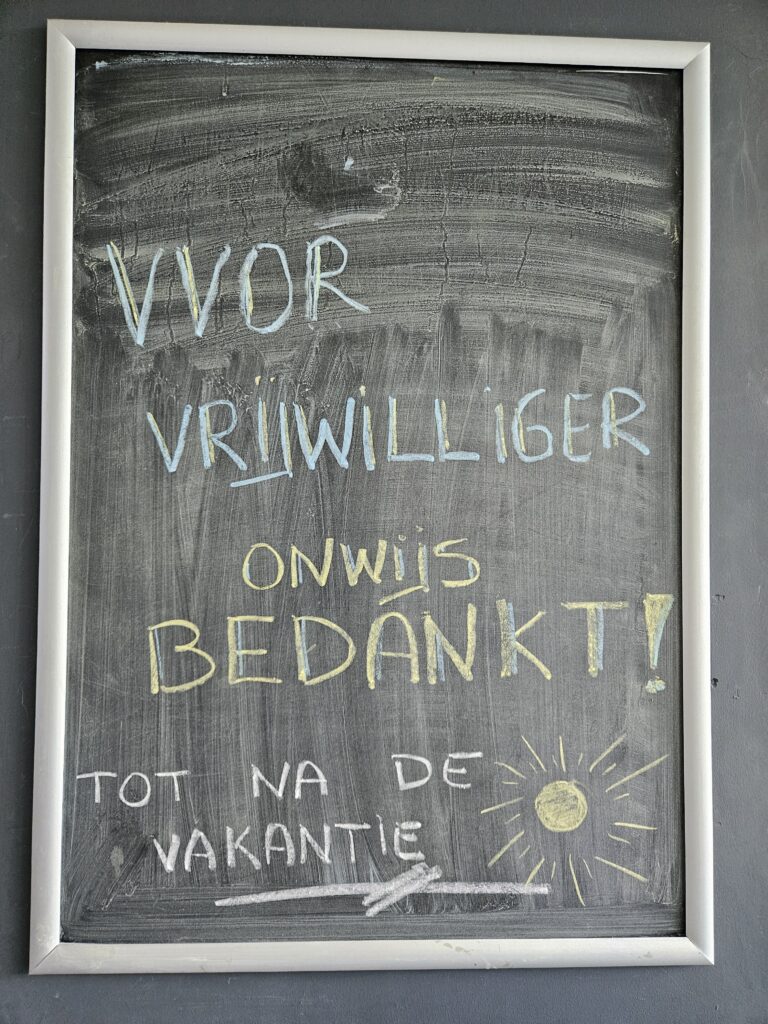 VVOR
VRIJWILLIGER
ONWIJS
BEDANKT!
TOT NA DE
VAKANTIE